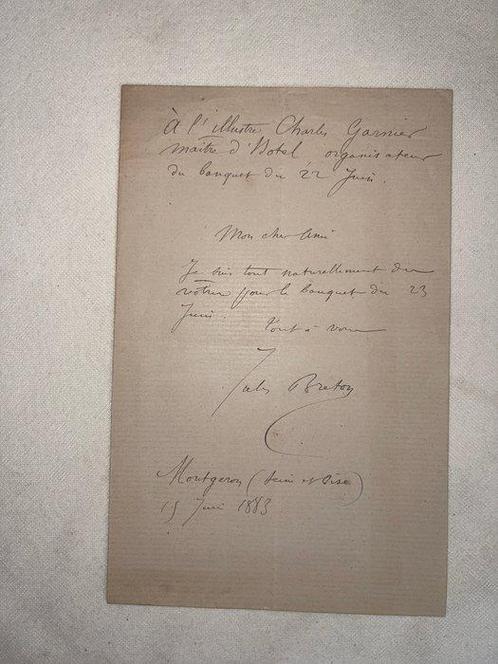 À l'illustre Charles Garnier
maître d'Hotel organisateur
du banquet du 22 Juin.
Mon cher Ami
Je suis tout naturellement des
vôtres pour le banquet du 23
Juin.
Tout à vous
Jules Breton
Montgeron (Seine et Oise)
15 Juin 1883